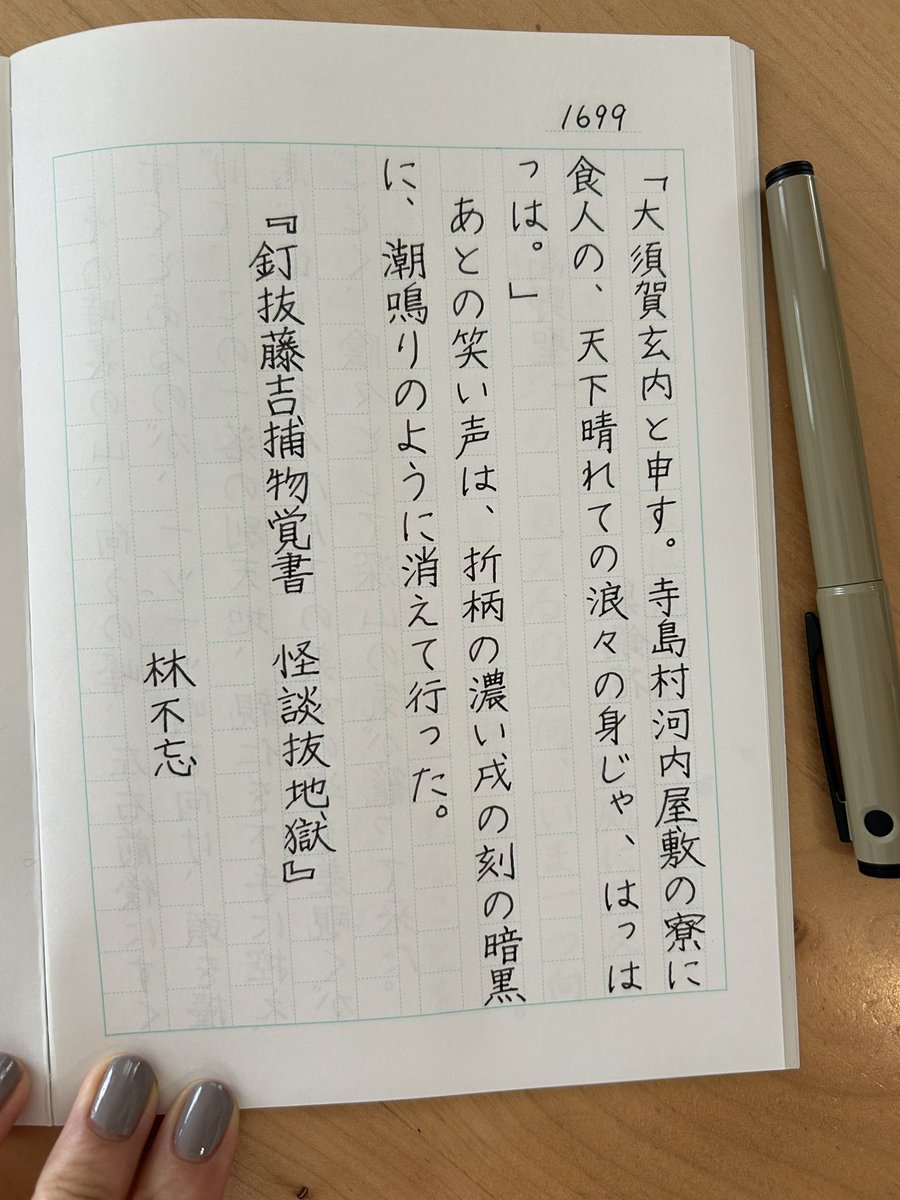 1699
「大須賀玄内と申す。寺島村河内屋敷の寮に
食人の、天下晴れての浪々の身じゃ、はっは
っは。」
あとの笑い声は、折柄の濃い戌の刻の暗黒
に、潮鳴りのように消えて行った。
『釘抜藤吉捕物覚書　怪談抜地獄』
林不忘